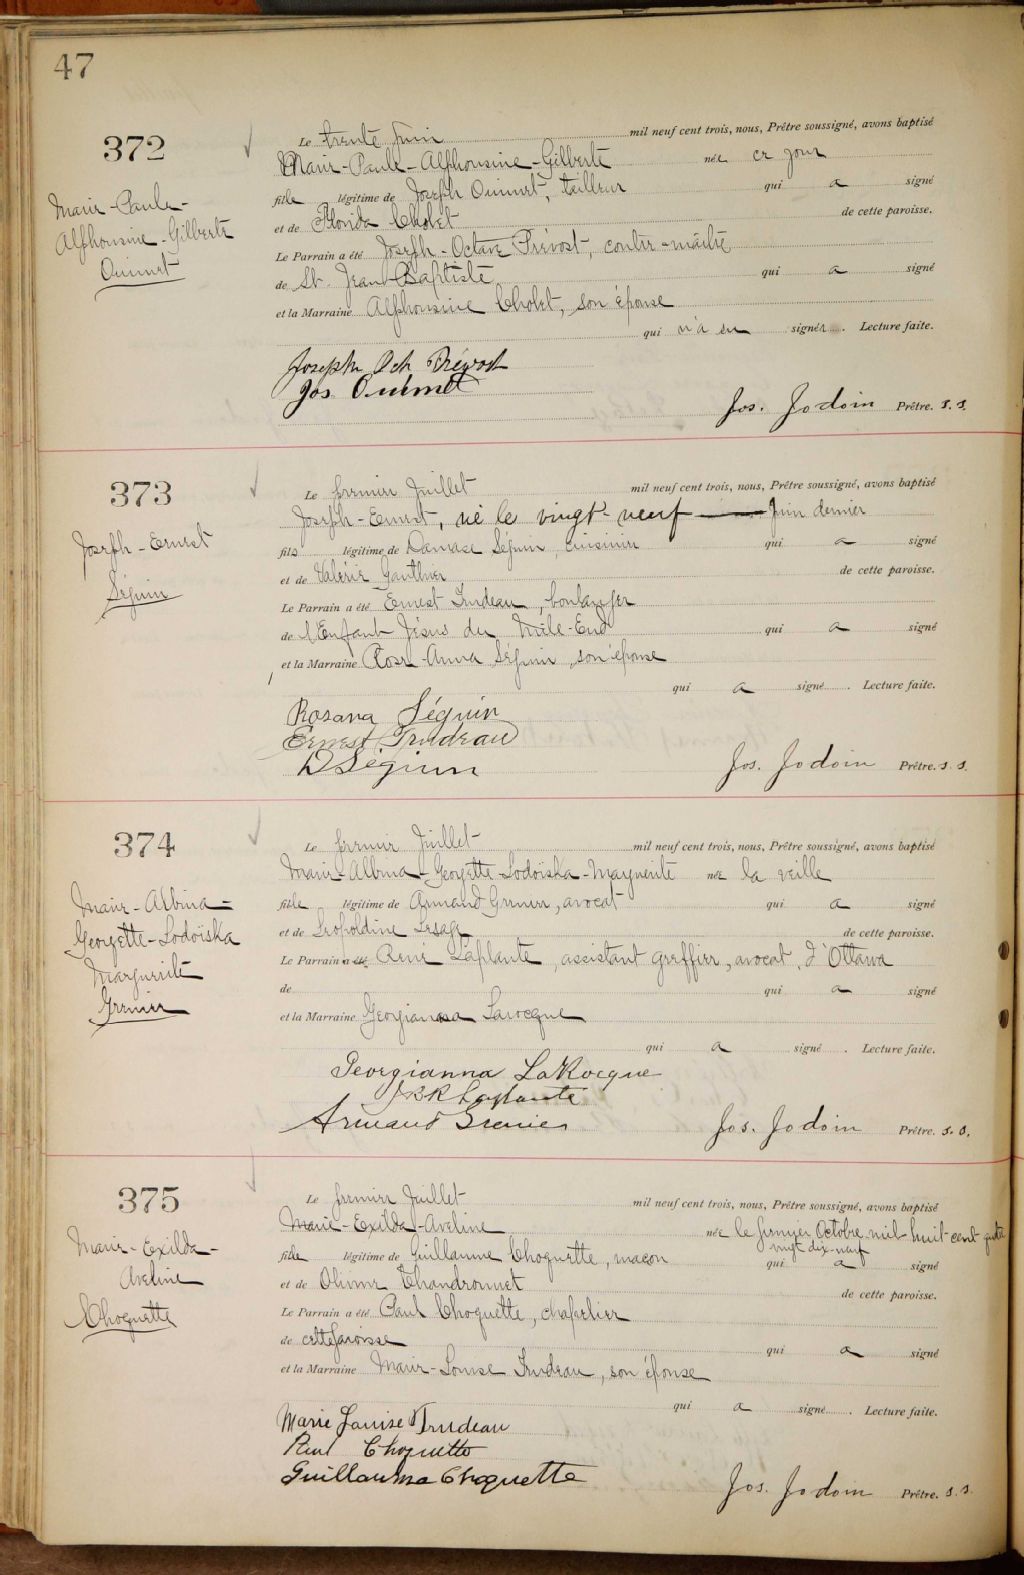 47
372
Marie-Paule-
Alphonsine-Gilberte
Ouimet
Le trente Juin mil neuf cent trois, nous, Prêtre soussigné, avons baptisé
Marie-Paule-Alphonsine-Gilberte née ce jour
fille légitime de Joseph Ouimet, tailleur qui a signé
et de Florida Cholet de cette paroisse.
Le Parrain a été Joseph-Octave Prévost, contre-maître
de St. Jean Baptiste qui a signé
et la Marraine Alphonsine Cholet, son épouse
qui n'a su signer. Lecture faite.
Joseph Oct Prévost
Jos Ouimet
Jos. Jodoin Prêtre. s. s.
373
Joseph-Ernest
Séguin
Le premier Juillet mil neuf cent trois, nous, Prêtre soussigné, avons baptisé
Joseph-Ernest, né le vingt-neuf Juin dernier
fils légitime de Damase Séguin, cuisinier qui a signé
et de Valérie Gauthier de cette paroisse.
Le Parrain a été Ernest Trudeau, boulanger
de l'Enfant Jésus du Mile-End qui a signé
et la Marraine Rose-Anna Séguin, son épouse
qui a signé. Lecture faite.
Rosana Séguin
Ernest Trudeau
D Séguin
Jos. Jodoin Prêtre. s. s.
374
Marie-Albina-
Georgette-Lodoïska
Marguerite
Grenier
Le premier Juillet mil neuf cent trois, nous, Prêtre soussigné, avons baptisé
Marie-Albina-Georgette-Lodoïska-Marguerite née la veille
fille légitime de Armand Grenier, avocat qui a signé
et de Léopoldine Lesage de cette paroisse.
Le Parrain a été René Laplante, assistant greffier, avocat, d'Ottawa
de qui a signé
et la Marraine Georgianna Larocque
qui a signé. Lecture faite.
Georgianna LaRocque
Laplante
Armand Grenier
Jos. Jodoin Prêtre. s. s.
375
Marie-Exilda-
Aveline
Choquette
Le premier Juillet mil neuf cent trois, nous, Prêtre soussigné, avons baptisé
Marie-Exilda-Aveline née le premier Octobre mil huit cent quatre
vingt dix-neuf
fille légitime de Guillaume Choquette, maçon qui a signé
et de Olivine Chandronnet de cette paroisse.
Le Parrain a été Paul Choquette, chapelier
de cette paroisse qui a signé
et la Marraine Marie-Louise Trudeau, son épouse
qui a signé. Lecture faite.
Marie Louise Trudeau
Paul Choquette
Guillaume Choquette
Jos. Jodoin Prêtre. s. s.